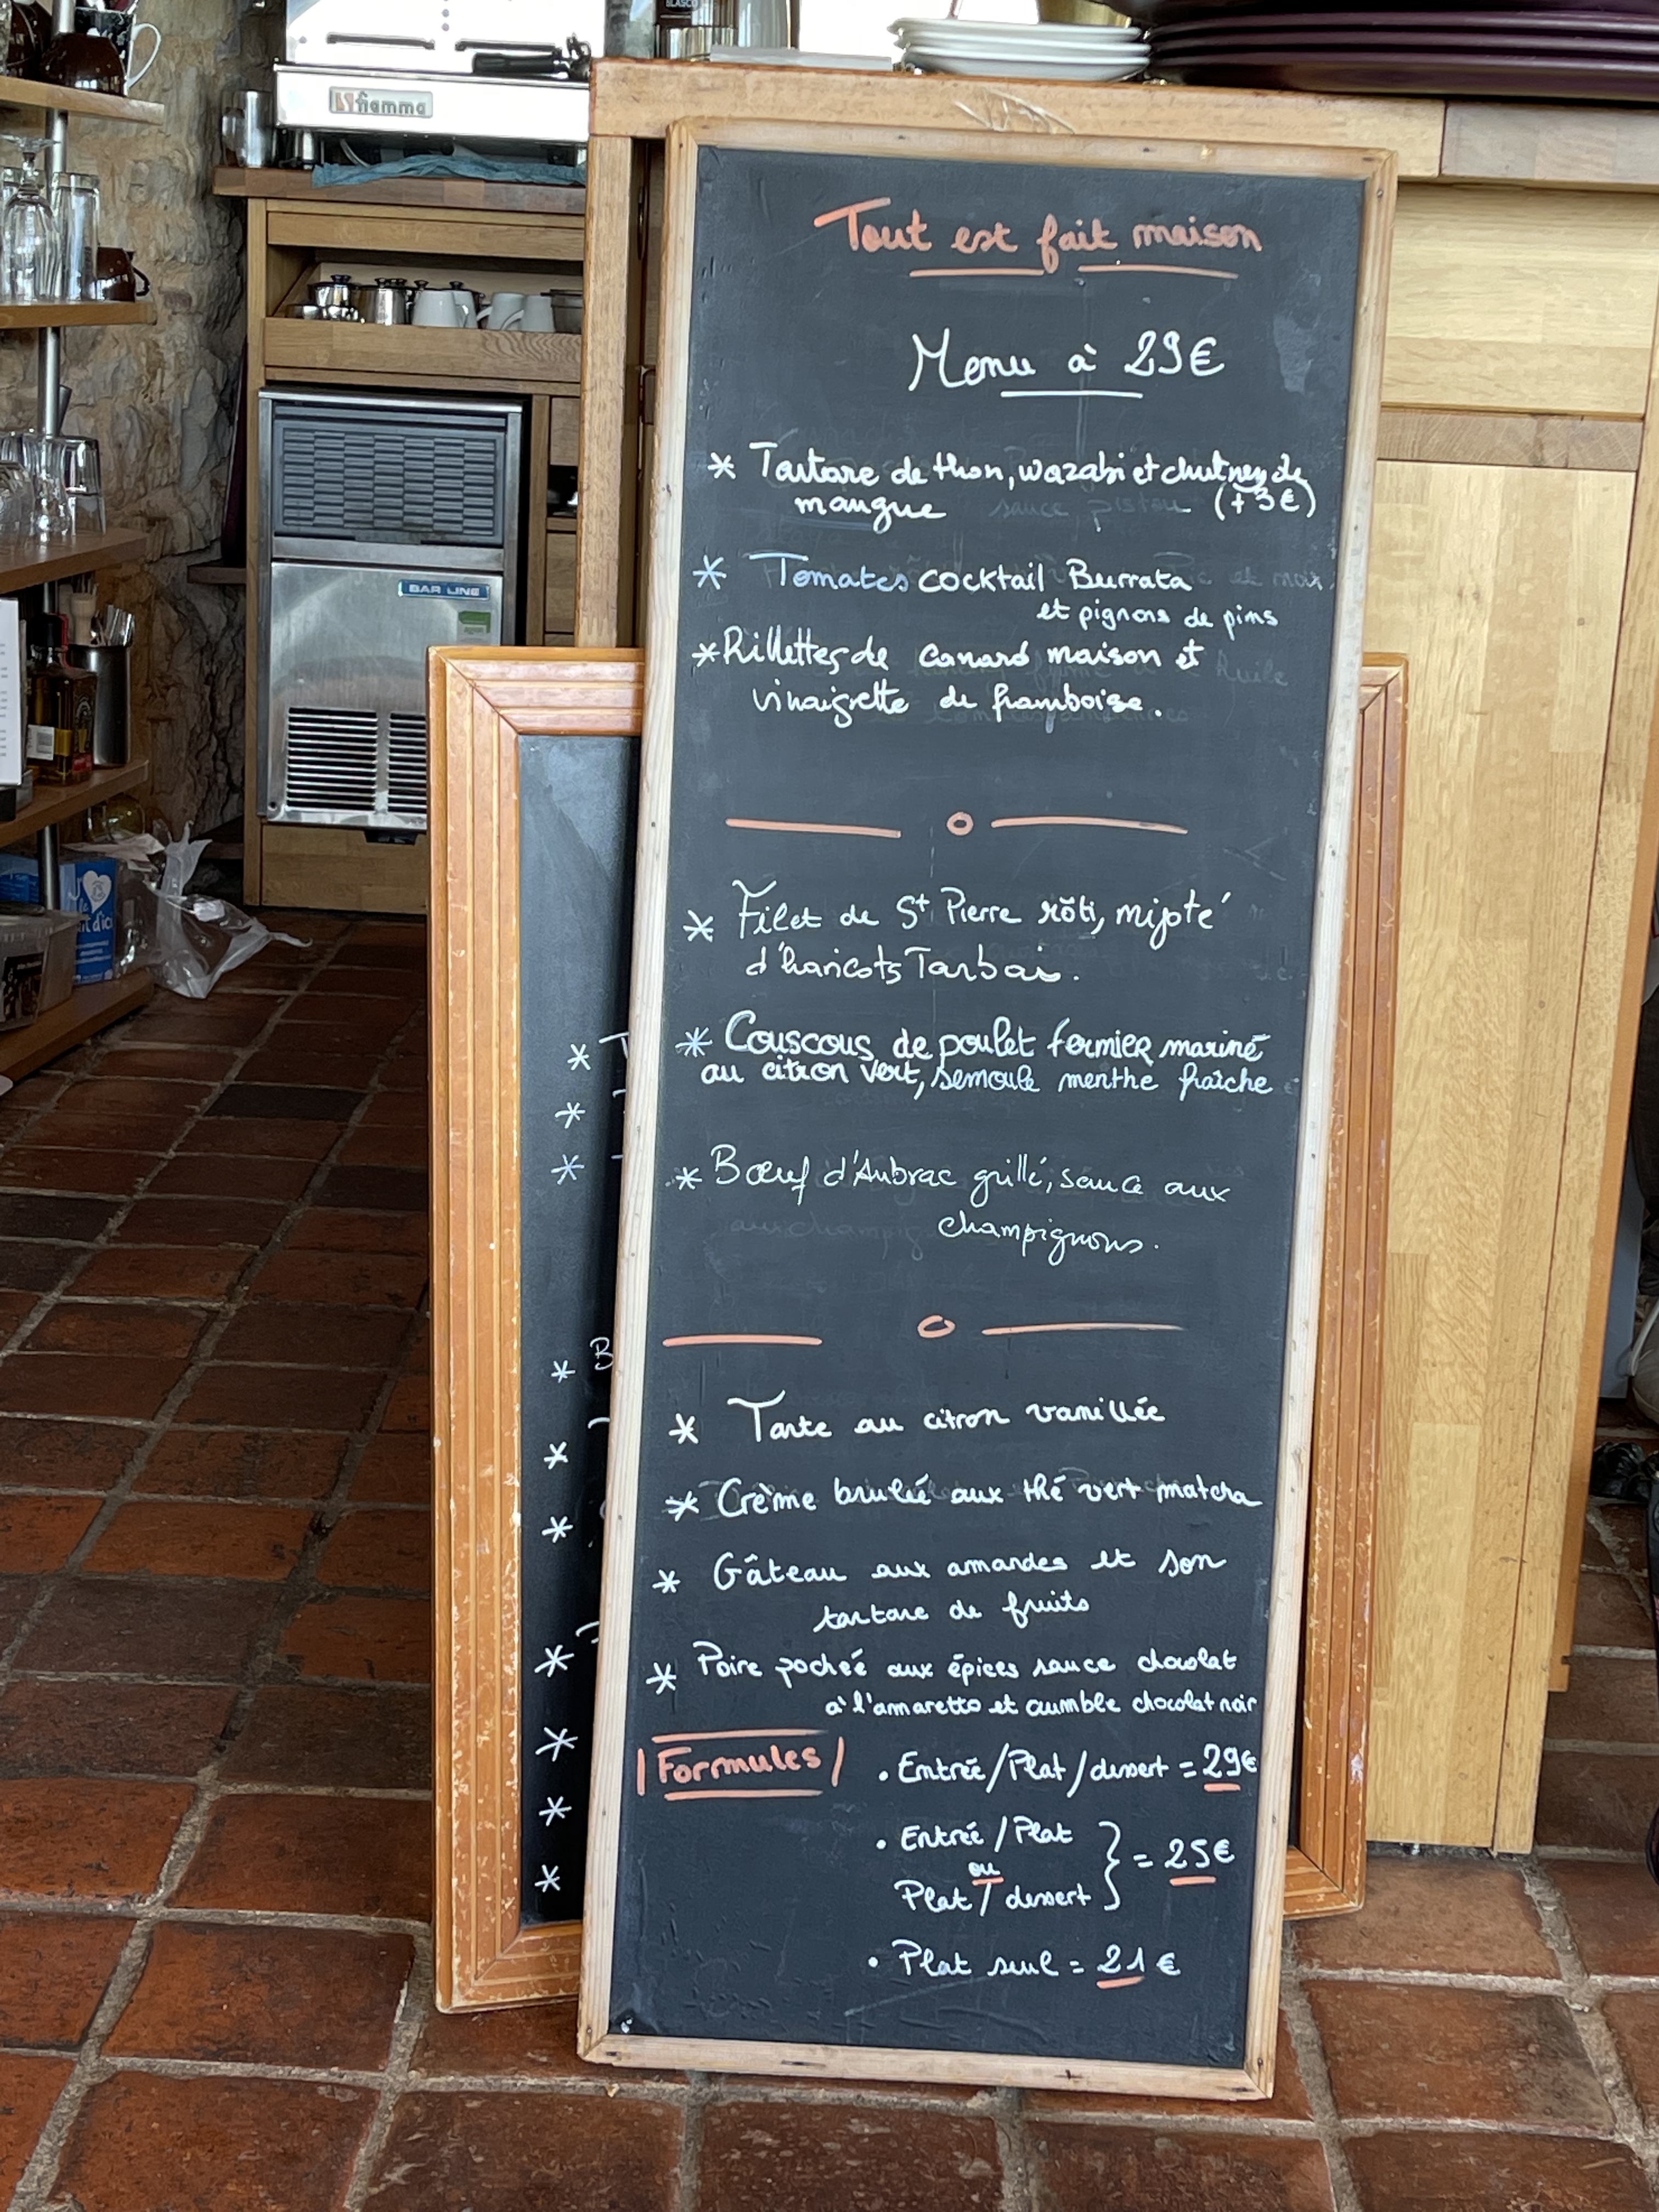 BLASCO
fiamma
BAR LINE
Tout est fait maison
Menu à 29€
* Tartare de thon, wazabi et chutney de
mangue (+3€)
* Tomates cocktail Burrata
et pignons de pins
* Rillettes de canard maison et
vinaigrette de framboise.
* Filet de St Pierre rôti, mijoté
d'haricots Tarbais.
* Couscous de poulet fermier mariné
au citron vert, semoule menthe fraîche
* Bœuf d'Aubrac grillé, sauce aux
champignons.
* Tarte au citron vanillée
* Crème brulée aux thé vert matcha
* Gâteau aux amandes et son
tartare de fruits
* Poire pochée aux épices sauce chocolat
à l'amaretto et crumble chocolat noir
Formules
• Entrée/Plat/dessert = 29€
• Entrée/Plat
ou
Plat/dessert } = 25€
• Plat seul = 21€